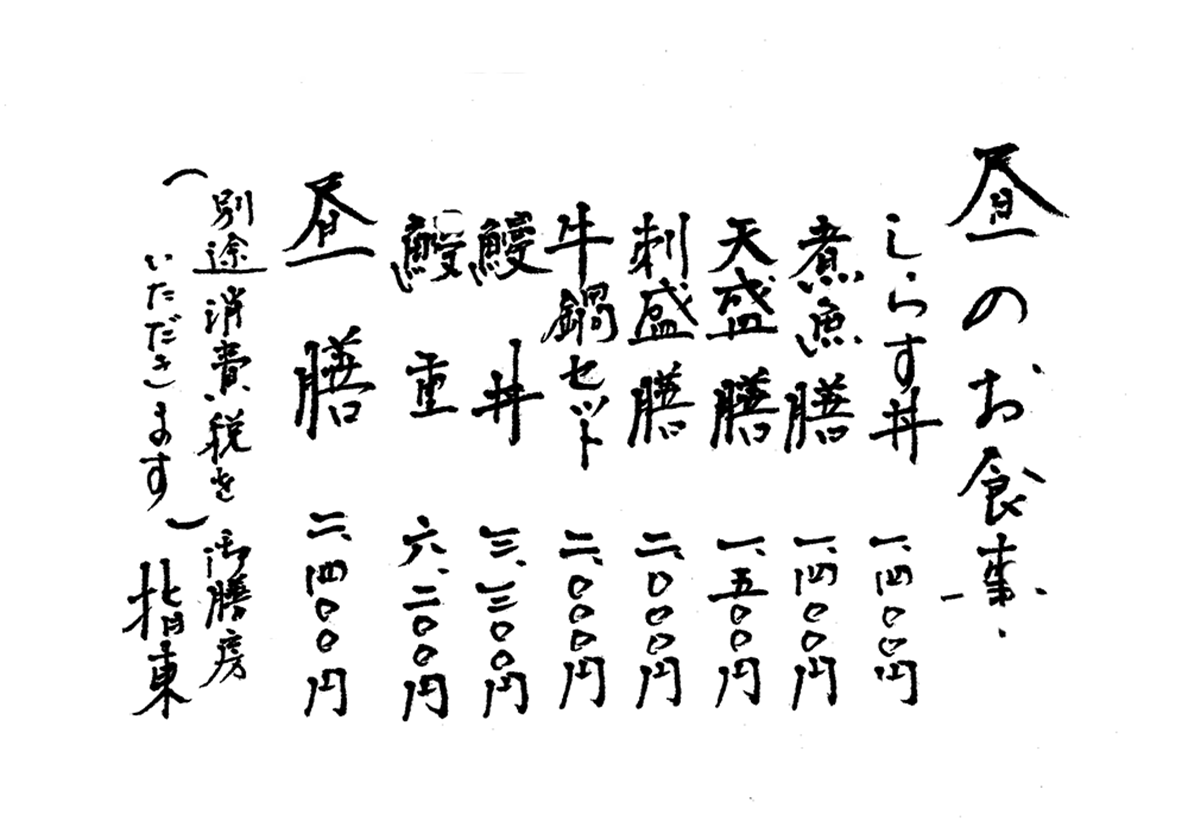 昼のお食事
しらす丼 一、四〇〇円
煮魚膳 一、四〇〇円
天盛膳 一、五〇〇円
刺盛膳 二、〇〇〇円
牛鍋セット 二、〇〇〇円
鰻丼 三、三〇〇円
鰻重 六、二〇〇円
昼膳 二、四〇〇円
(別途消費税を
いただきます)
御膳房
指東